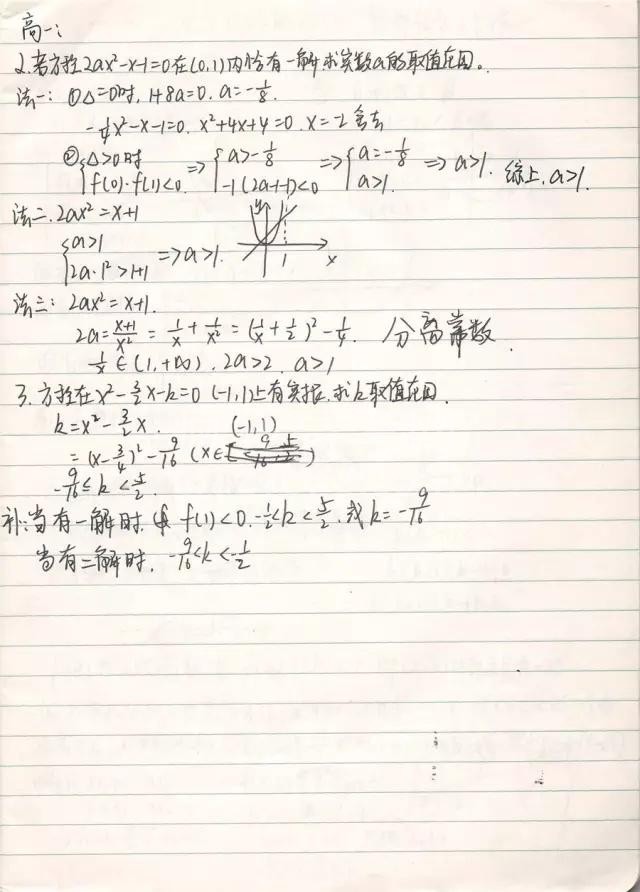 高一:
2.若方程2ax²-x-1=0在(0,1)内恰有一解求实数a的取值范围。
法一: ①Δ=0时, 1+8a=0. a=-1/8.
-1/4x²-x-1=0. x²+4x+4=0. x=-2 舍去
② {Δ>0时 f(0)·f(1)<0 ⇒ {a>-1/8 -1(2a-1-1)<0 ⇒ {a=-1/8 a>1. ⇒ a>1. 综上, a>1.
法二. 2ax²=x+1
{a>1 2a·1²>1+1 ⇒ a>1. y 1 x
法三: 2ax²=x+1.
2a=(x+1)/x² = 1/x + 1/x² = (1/x+1/2)²-1/4. 分离常数.
1/x∈(1,+∞), 2a>2, a>1
3. 方程在x²-3/2x-k=0 (-1,1)上有实根, 求k取值范围.
k=x²-3/2x. (-1,1)
=(x-3/4)²-9/16 (x∈ )
-9/16≤k<5/2.
补:当有一解时, f(1)<0. -1/2<k<5/2. 或k=-9/16
当有二解时, -9/16<k<-1/2